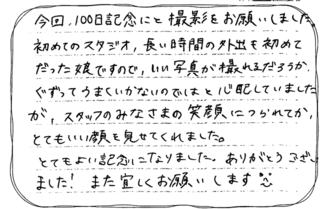 今回、100日記念にと撮影をお願いしました。
初めてのスタジオ、長い時間の外出も初めて
だった娘ですので、いい写真が撮れるだろうか
ぐずってうまくいかないのではと心配していました
が、スタッフのみなさまの笑顔につられてか、
とてもいい顔を見せてくれました。
とてもよい記念になりました。ありがとうござい
ました！また宜しくお願いします